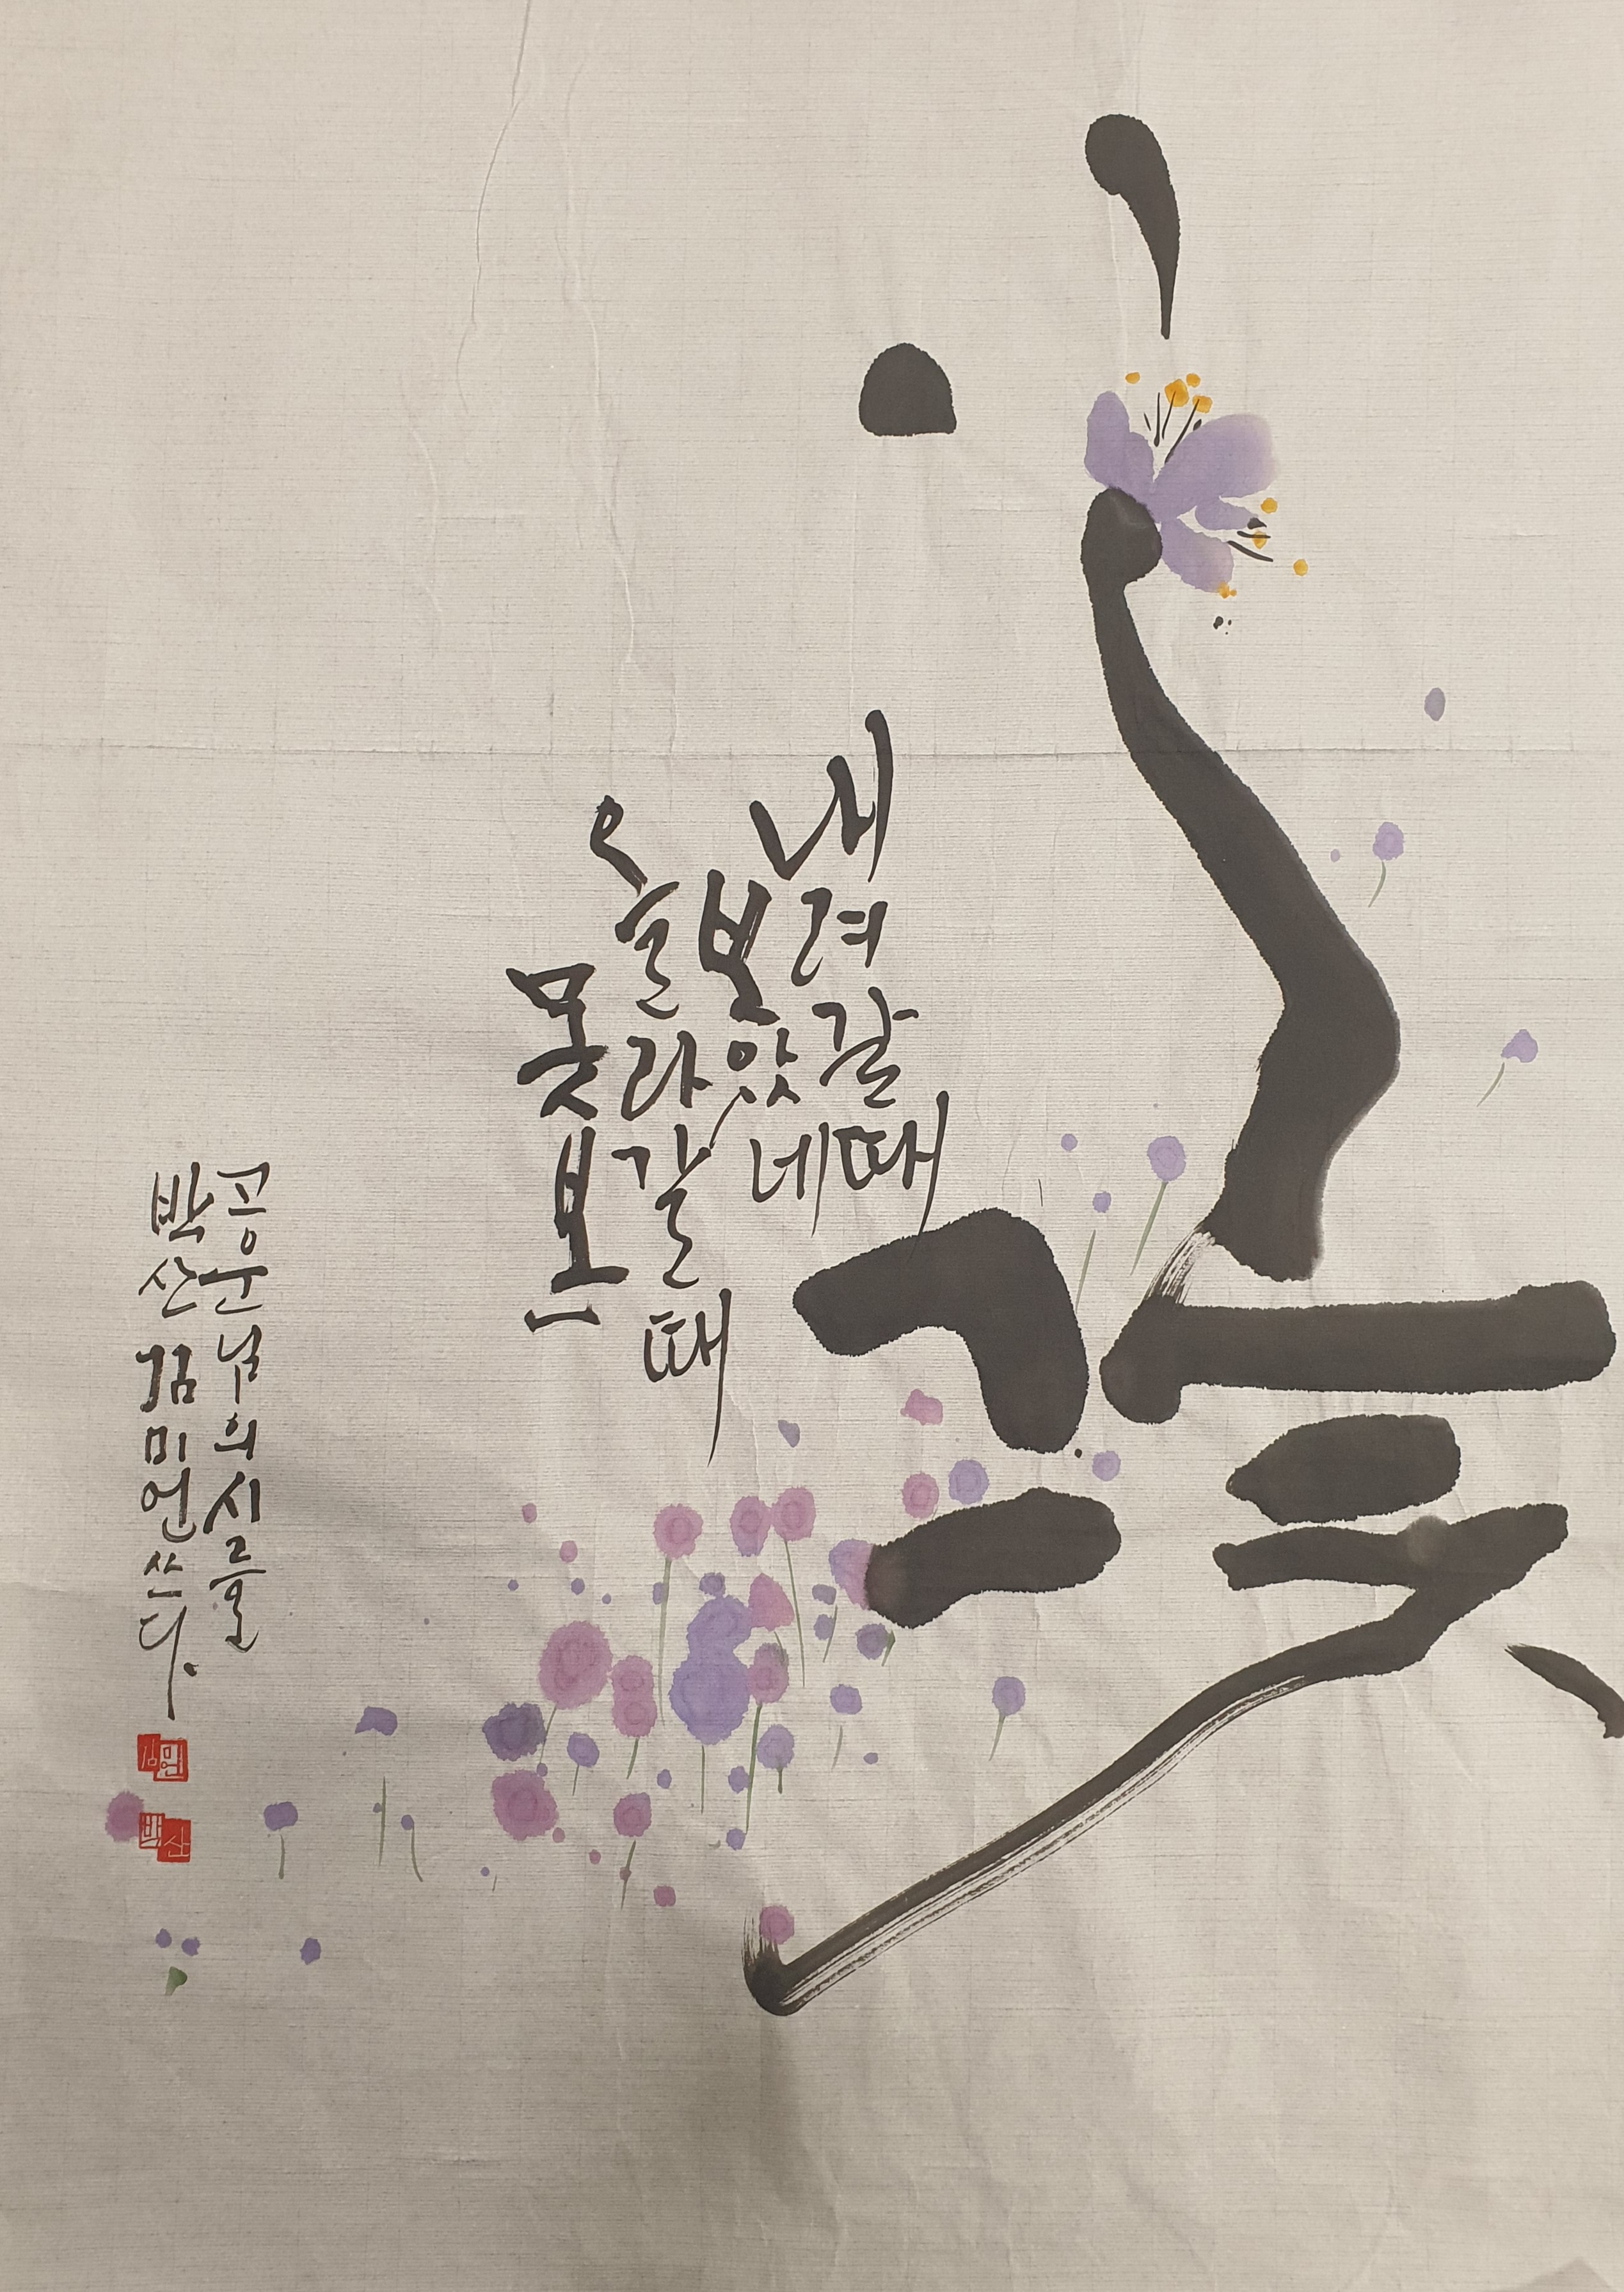 그 꽃
내려갈때
보았네
올라갈때
못본
고운님의시를
박산 김미언쓰다.
김미언
박산